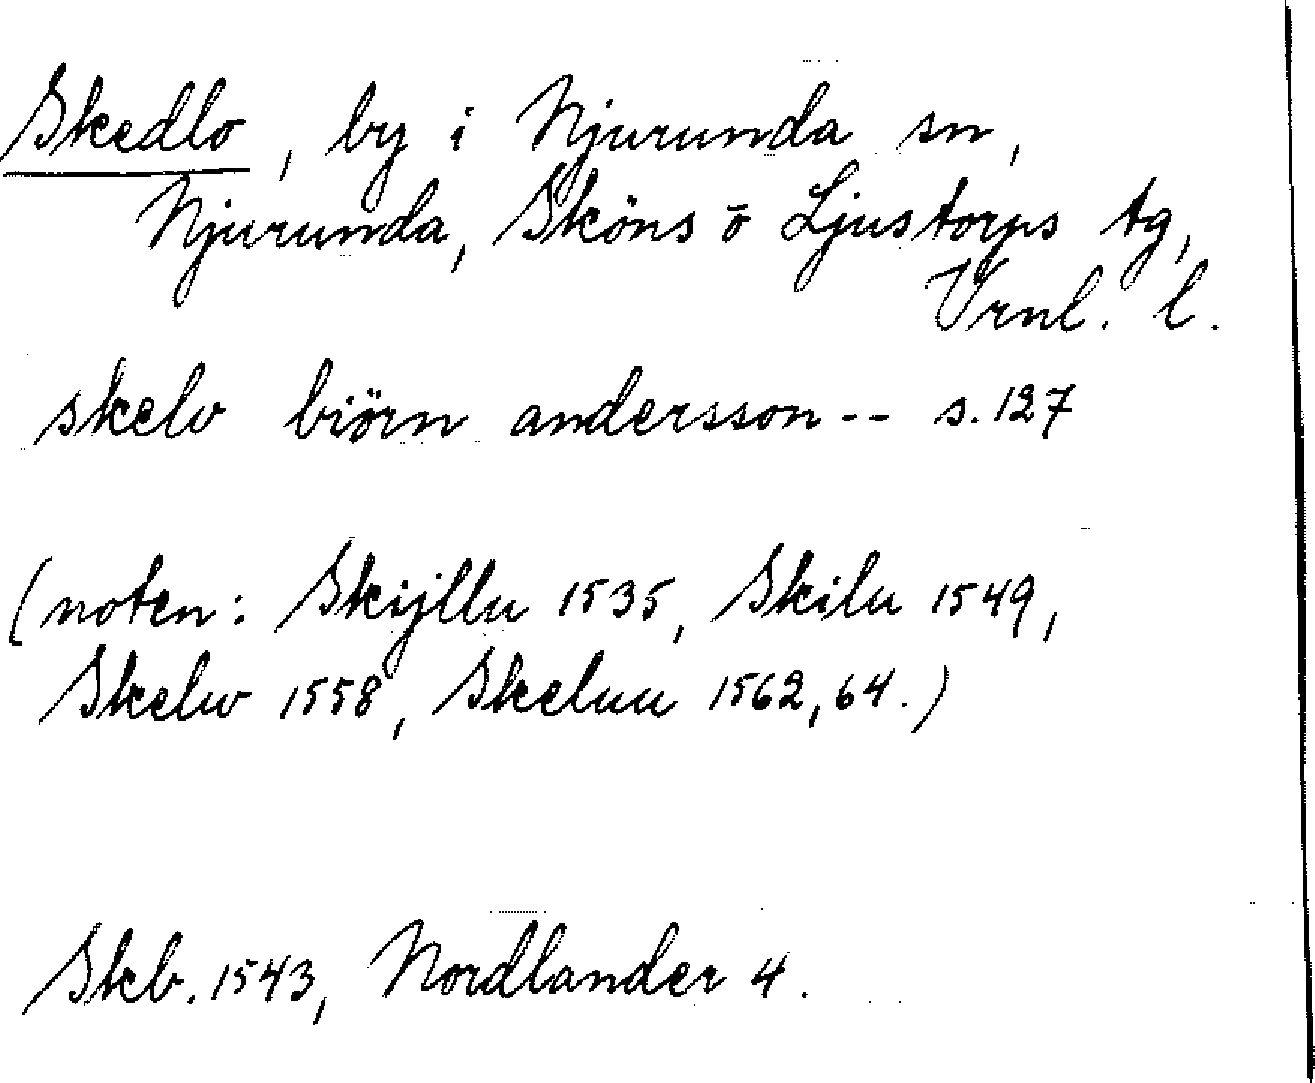 Skedlo, by i Njurunda sn,
Njurunda, Sköns ō Ljustorps tg,
Vrnl. l.
skelv biörn andersson -- s. 127
(noten: Skijllu 1535, Skilu 1549,
Skelw 1558, Skeluu 1562, 64.)
Skb. 1543, Nordlander 4.